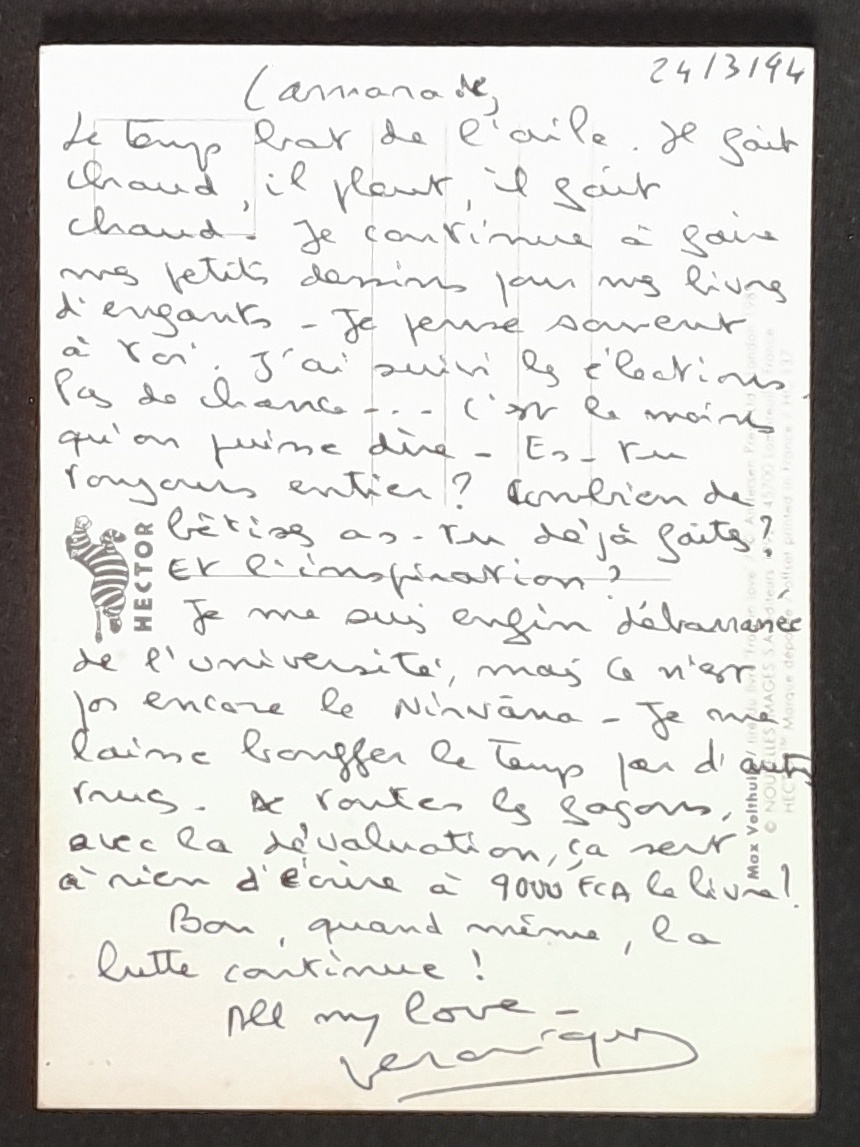 24/3/94
Camarade,
Le temps bat de l'aile. Il fait
chaud, il pleut, il fait
chaud. Je continue à faire
mes petits dessins pour mes livres
d'enfants - Je pense souvent
à toi. J'ai suivi les élections.
Pas de chance --- C'est le moins
qu'on puisse dire - Es-tu
toujours entier? Combien de
bêtises as-tu déjà faites?
Et l'inspiration?
Je me suis enfin débarrassée
de l'université, mais ce n'est
pas encore le Nirvāna - Je me
laisse bouffer le temps par d'autres
trucs. De toutes les façons,
avec la dévaluation, ça sert
à rien d'écrire à 9000 FCA le livre!
Bon, quand même, la
lutte continue!
All my love -
Veronique
HECTOR
Max Velthuijs / tiré du livre "Frog in love" / © Andersen Press Ltd London 1989
© NOUVELLES IMAGES S.A. éditeurs 45700 Lombreuil France
HECTOR Marque déposée offset printed in France